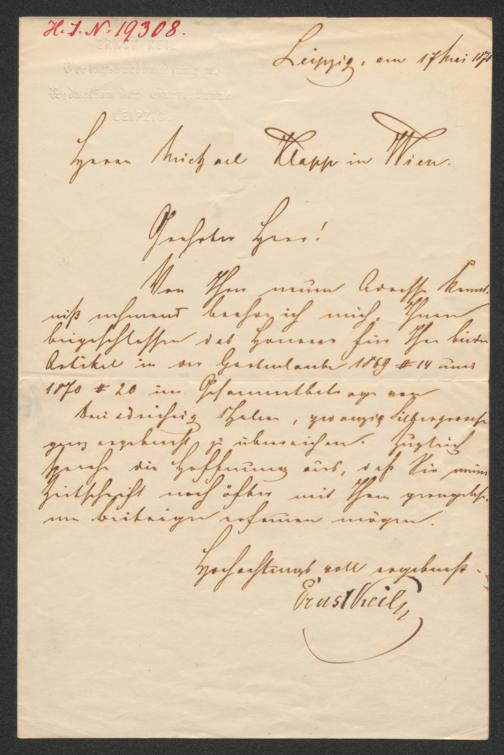 H. I. N. 19308.
ERNST KEIL
Verlagsbuchhandlung u.
Redaction der Gartenlaube
LEIPZIG.
Leipzig, am 17 Mai 1870
Herrn Michael Klapp in Wien.
Geehrter Herr!
Von Ihrer neuen Adresse Kennt-
niß nehmend beehre ich mich, Ihnen
beigeschlossen das Honorar für Ihre beiden
Artikel in der Gartenlaube 1869 # 14 und
1870 # 20 im Gesammtbetrage von
dreißig Thaler, zwanzig Silbergrosch
ganz ergebenst zu überreichen. Zugleich
spreche die Hoffnung aus, daß Sie meine
Zeitschrift noch öfter mit Ihren
Beiträgen erfreuen mögen.
Hochachtungsvoll ergebenst
Ernst Keil